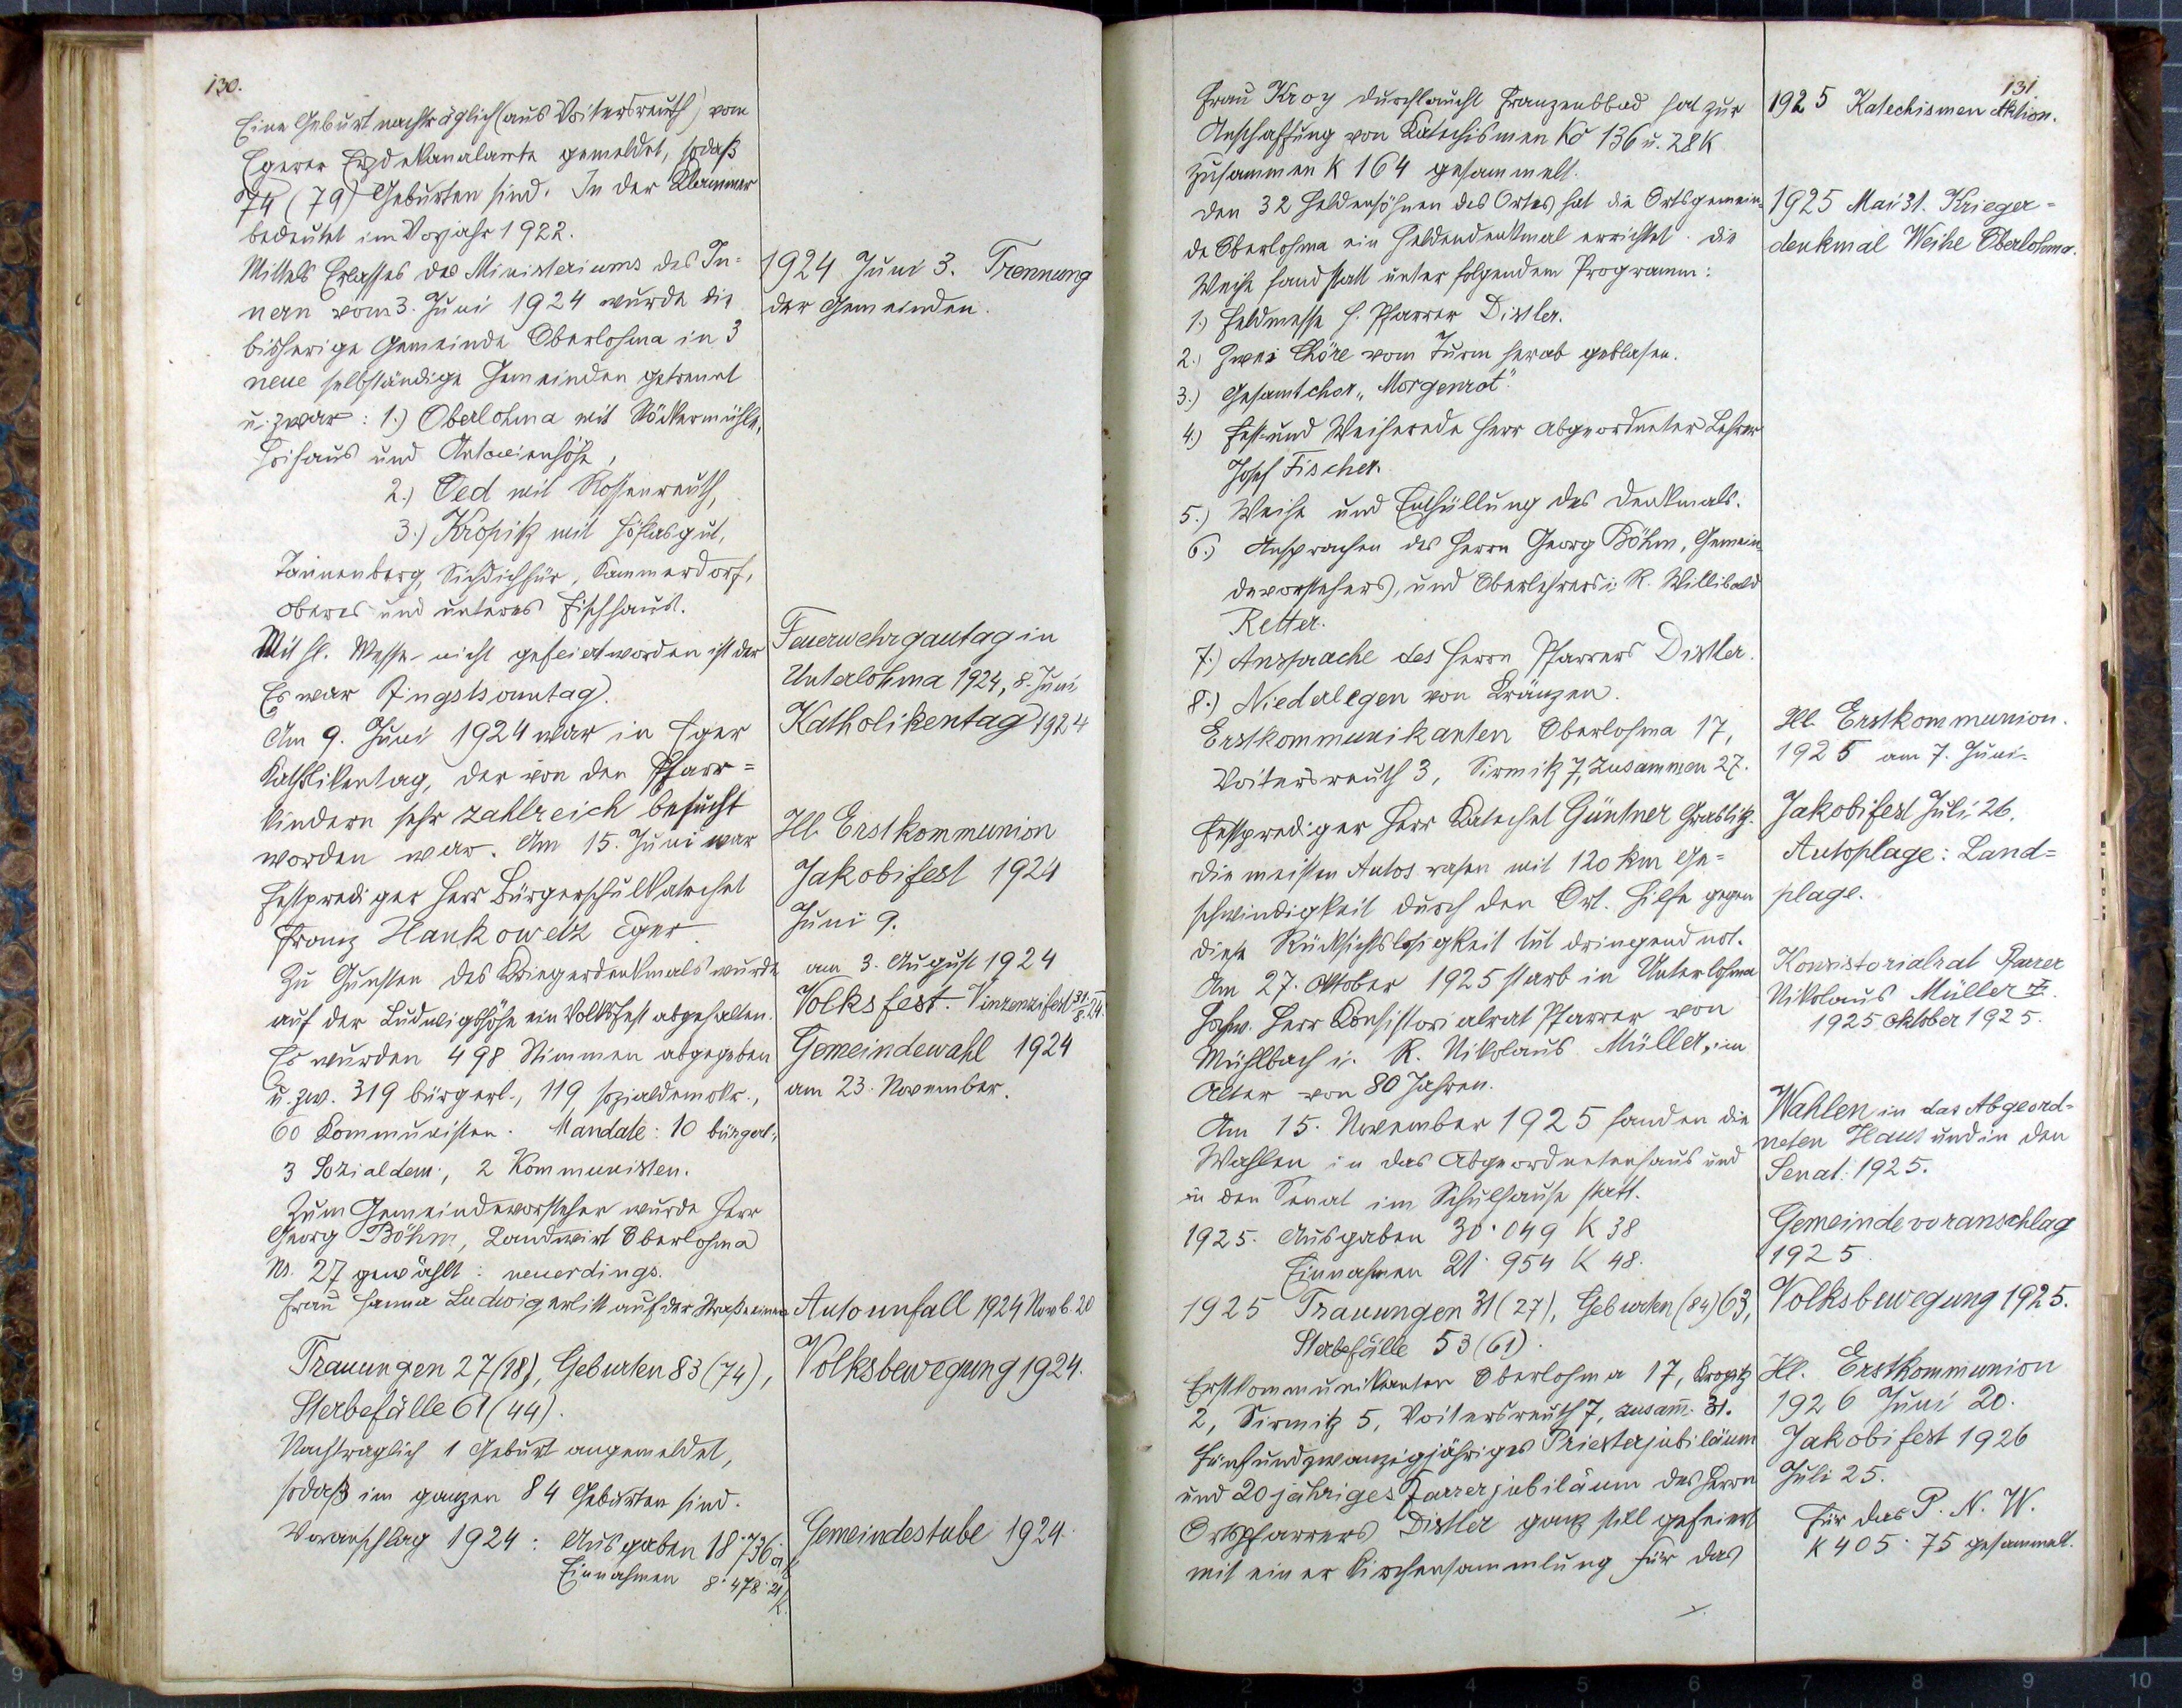 130.
Eine Geburt nachträglich (aus Voitersreuth) vom
Egerer Erzdekanalamte gemeldet, sodaß
74 (79) Geburten sind. In der Klammer
bedeutet im Vorjahr 1922.
Mittels Erlasses des Ministeriums des In-
nern vom 3. Juni 1924 wurde die
bisherige Gemeinde Oberlohma in 3
neue selbständige Gemeinden getrennt
u. zwar: 1.) Oberlohma mit Stöckermühle,
und Antonienhöhe,
2.) Oed mit Rossenreuth,
3.) Kropitz mit Höflasgut,
Tannenberg, Sichdichfür, Kammerdorf,
oberes und unteres Fischhaus.
Mit hl. Messe nicht gefeiert worden ist der
(Es war Fingstsonntag).
Am 9. Juni 1924 war in Eger
Katholikentag, der von den Pfarr=
kindern sehr zahlreich besucht
worden war. Am 15. Juni war
Festprediger Herr Bürgerschulkatechet
Franz Hankowetz Eger.
Zu Gunsten des Kriegerdenkmals wurde
auf der Ludwigshöhe ein Volksfest abgehalten.
Es wurden 498 Stimmen abgegeben
u. zw. 319 bürgerl., 119 sozialdemokr.,
60 Kommunisten. Mandate: 10 bürgerl.,
3 Sozialdem., 2 Kommunisten.
Zum Gemeindevorsteher wurde Herr
Georg Böhm, Landwirt Oberlohma
No. 27 gewählt: neuerdings.
Frau Hanna Ludwig erlitt auf der Straße einen
Trauungen 27 (18), Geburten 83 (74),
Sterbefälle 61 (44).
Nachtraglich 1 Geburt angemeldet,
sodaß im ganzen 84 Geburten sind.
Voranschlag 1924: Ausgaben 18·736
Einnahmen 8·478·21 K.
1924 Juni 3. Trennung
der Gemeinden.
Feuerwehrgautag in
Unterlohma 1924, 8. Juni
Katholikentag 1924
Hl. Erstkommunion
Jakobifest 1924
Juni 9.
am 3. August 1924
Volksfest. Vinzenzifest 31./8. 24.
Gemeindewahl 1924
am 23. November.
Autounfall 1924 Novb. 20
Volksbewegung 1924.
Gemeindestube 1924.
131.
Frau Kroy Durchlaucht Franzensbad hat zur
Anschaffung von Katechismen Kč 136 u. 28 K
zusammen K 164 gesammelt.
Den 32 Heldensöhnen des Ortes hat die Ortsgemein-
de Oberlohma ein Heldendenkmal errichtet. Die
Weihe fand statt unter folgendem Programm:
1.) Feldmesse H. Pfarrer Distler.
2.) Zwei Chöre vom Turm herab geblasen.
3.) Gesamtchor „Morgenrot".
4.) Fest und Weiherede Herr Abgeordneter Lehrer
Josef Fischer.
5.) Weihe und Enthüllung des Denkmals.
6.) Ansprachen des Herrn Georg Böhm, Gemein-
devorstehers, und Oberlehrers i. R. Willibald
Retter.
7.) Ansprache des Herrn Pfarrers Distler.
8.) Niederlegen von Kränzen.
Erstkommunikanten Oberlohma 17,
Voitersreuth 3, Sirmitz 7, zusammen 27.
Festprediger Herr Katechet Güntner Graslitz.
Die meisten Autos rasen mit 120 km Ge=
schwindigkeit durch den Ort. Hilfe gegen
diese Rücksichtslosigkeit tut dringend not.
Am 27. Oktober 1925 starb in Unterlohma
Hochw. Herr Konsistorialrat Pfarrer von
Mühlbach i. R. Nikolaus Müller, im
Alter von 80 Jahren.
Am 15. November 1925 fanden die
Wahlen in das Abgeordnetenhaus und
in den Senat im Schulhause statt.
1925. Ausgaben 30·049 K 38
Einnahmen 21·954 K 48.
1925 Trauungen 31 (27), Geburten (84) 63,
Sterbefälle 53 (61).
Erstkommunikanten Oberlohma 17, Kropitz
2, Sirmitz 5, Voitersreuth 7, zusam̄. 31.
Fünfundzwanzigjähriges Priesterjubiläum
und 20 jähriges Farrerjubiläum des Herrn
Ortspfarrers Distler ganz still gefeiert
mit einer Kirchensammlung für das
1925 Katechismen Aktion.
1925 Mai 31. Krieger=
denkmal Weihe Oberlohma.
Hl. Erstkommunion.
1925 am 7. Juni.
Jakobifest Juli 26.
Autoplage: Land=
plage.
Konsistorialrat Farrer
Nikolaus Müller
1925 Oktober 1925.
Wahlen in das Abgeord=
neten Haus und in den
Senat: 1925.
Gemeindevoranschlag
1925
Volksbewegung 1925.
Hl. Erstkommunion
1926 Juni 20.
Jakobifest 1926
Juli 25.
Für das P. N. W.
K 405·75 gesammelt.